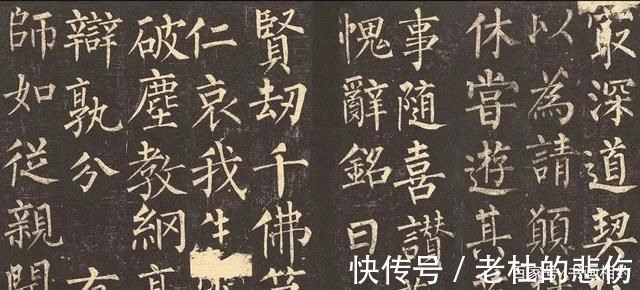 最深道契
以為請願
休嘗遊其
事随喜讃
愧辭銘曰
賢劫千佛第
仁哀我生
破塵教網高
辯孰分有
師如從親聞
快传号 / 老杜的悲伤